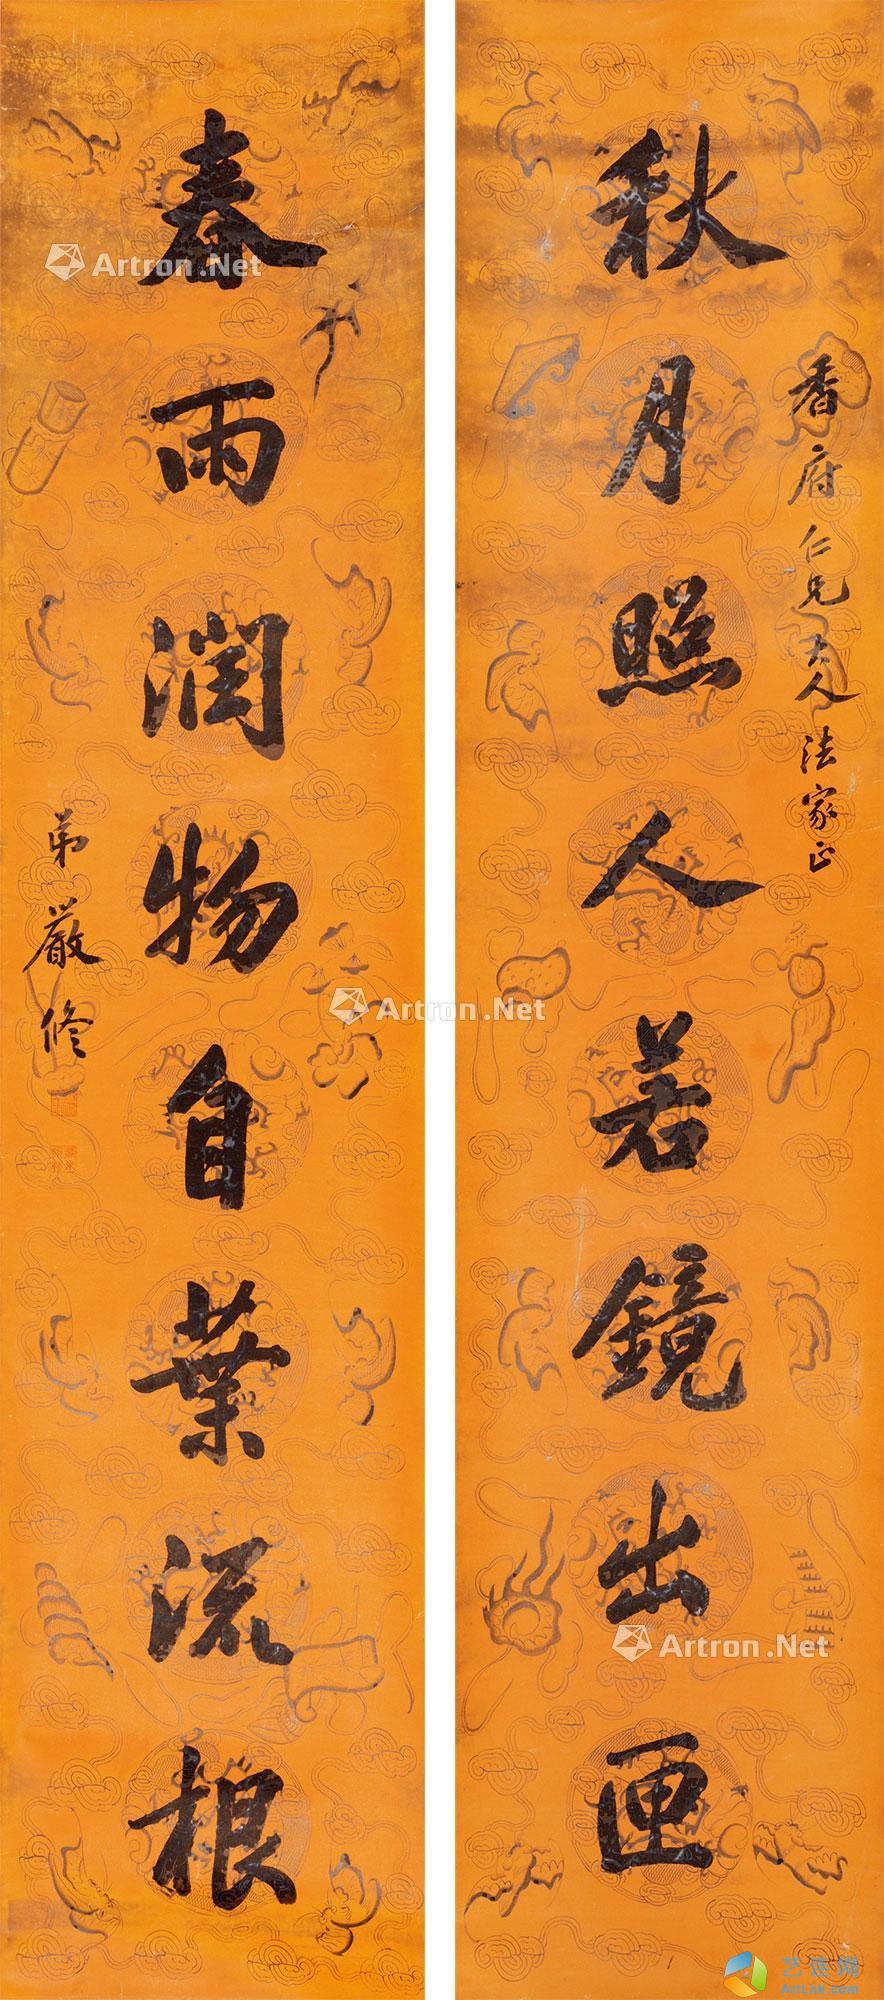 香府仁兄大人法家正
秋月照人若鏡出匣
春雨潤物自葉流根
弟嚴修
Artron.Net
Artron.Net
Artron.Net
艺连网
ArtLnk.com